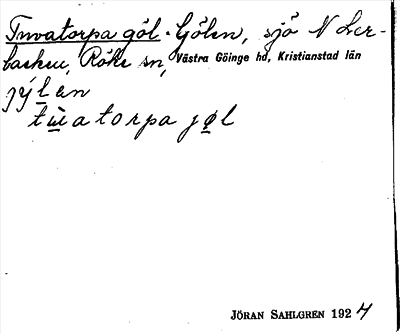 Tuvatorpa göl. Gölen, sjö N Ler-
backen, Röke sn, Västra Göinge hd, Kristianstad län
jýlen
tùatorpa jøl
JÖRAN SAHLGREN 1924